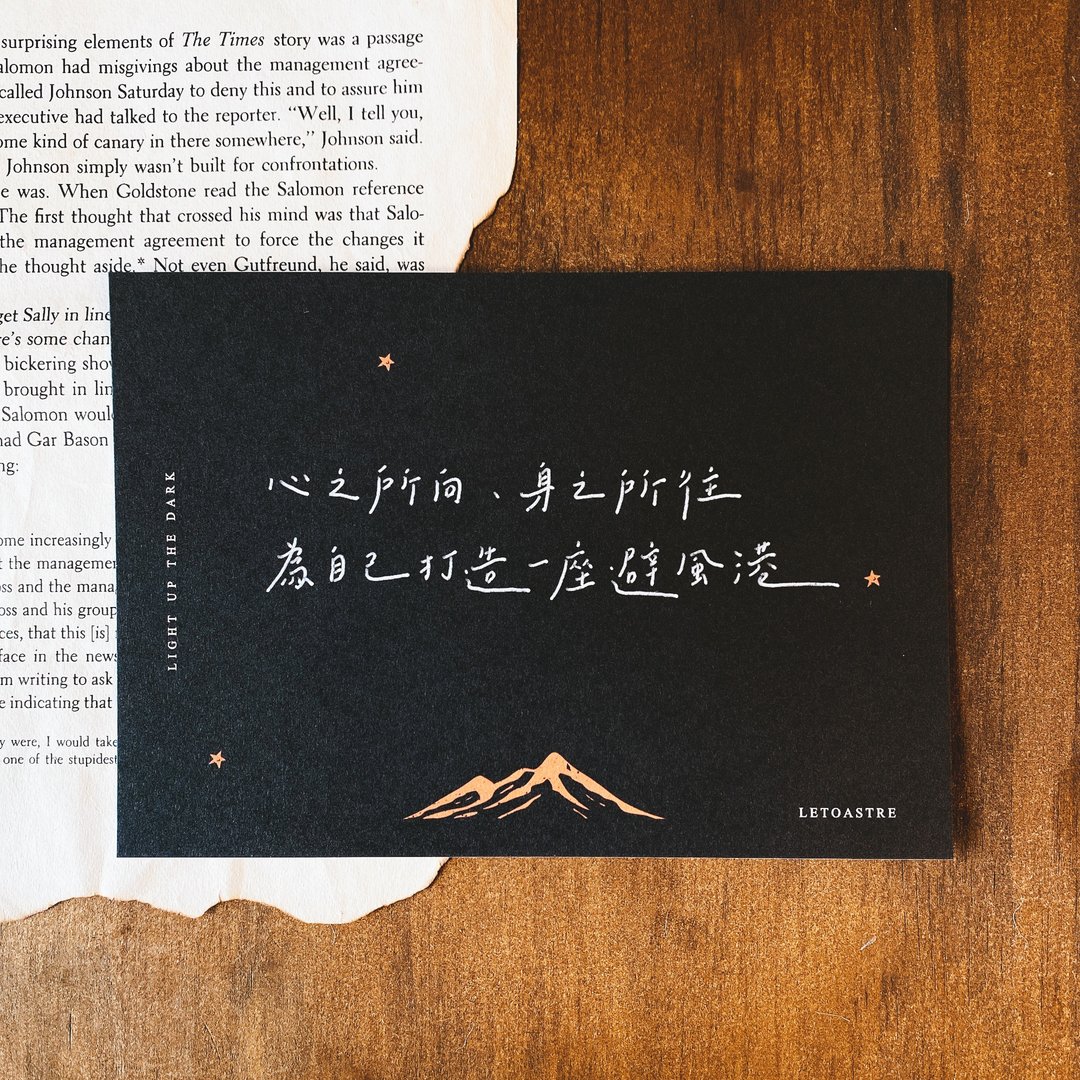 surprising elements of The Times story was a passage
alomon had misgivings about the management agree-
called Johnson Saturday to deny this and to assure him
executive had talked to the reporter. “Well, I tell you,
ome kind of canary in there somewhere,” Johnson said.
Johnson simply wasn’t built for confrontations.
e was. When Goldstone read the Salomon reference
The first thought that crossed his mind was that Salo-
the management agreement to force the changes it
he thought aside.* Not even Gutfreund, he said, was
get Sally in line
re’s some chan
bickering show
brought in lin
Salomon woul
had Gar Bason
ng:
ome increasingly
t the managemen
ss and the mana
oss and his group
ces, that this [is]
face in the news
m writing to ask
e indicating that
y were, I would take
one of the stupidest
LIGHT UP THE DARK
心之所向、身之所往
為自己打造一座避風港
LETOASTRE